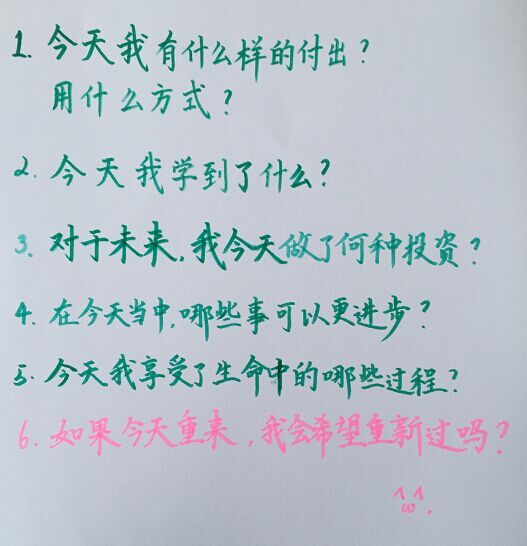 1. 今天我有什么样的付出?
用什么方式?
2. 今天我学到了什么?
3. 对于未来,我今天做了何种投资?
4. 在今天当中,哪些事可以更进步?
5. 今天我享受了生命中的哪些过程?
6. 如果今天重来,我会希望重新过吗?
^ω^.